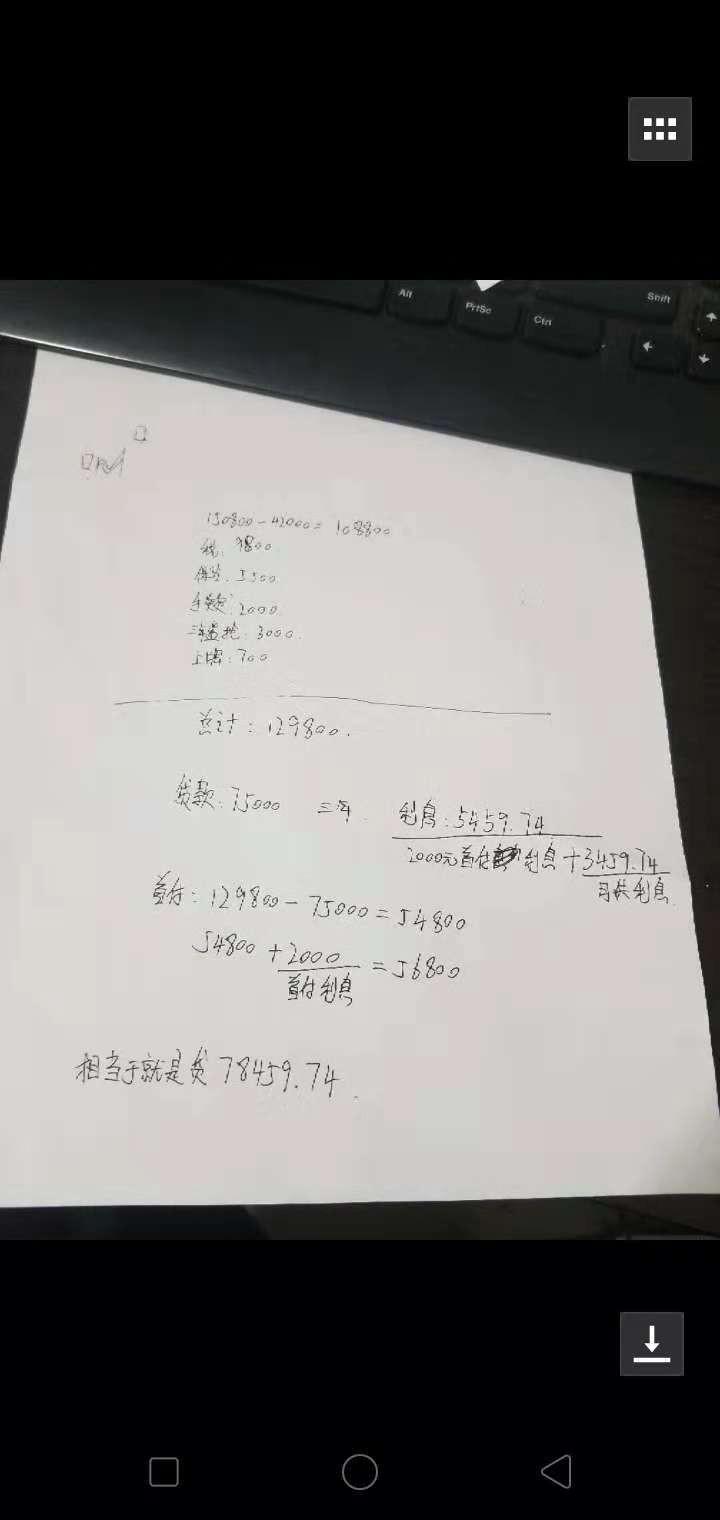 Alt
PrtSc
Ctrl
Shift
150800-42000=108800
税:9800
保险:5500
手续费:2000
三年盗抢:3000.
上牌:700
总计:129800.
贷款:75000 三年. 利息:5459.74
2000元首付利息+3459.74
月供利息
首付:129800-75000=54800
54800+2000=56800
首付利息
相当于就是贷78459.74.